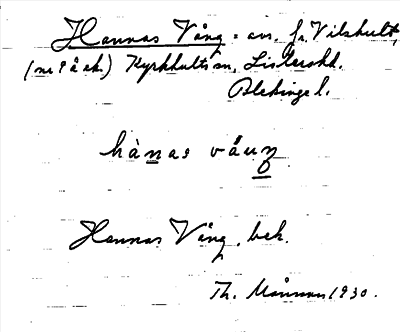 Hannas Vång = av. fr. Vilshult,
(nr 9 å ek.) Kyrkhults sn, Listers hd.
Blekinge l.
hànas våuŋ
Hannas Vång, beb.
Th. Månsson 1930.